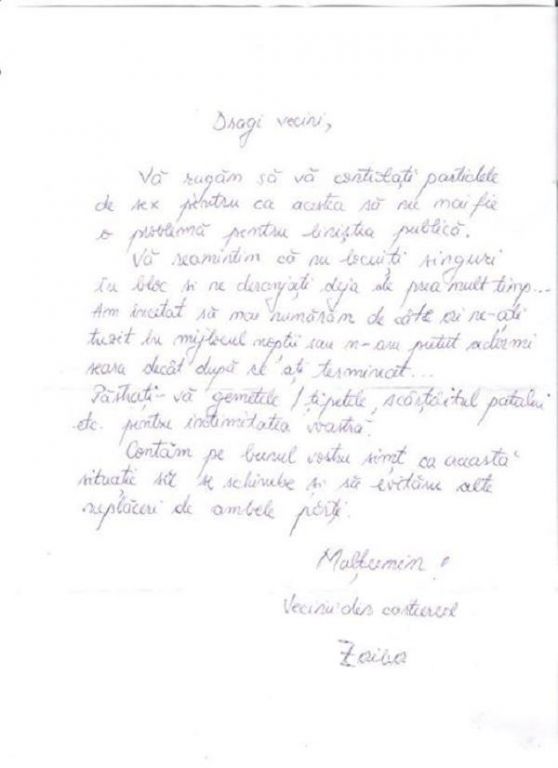 Dragi vecini,
Vă rugăm să vă controlați partidele
de sex pentru ca acestea să nu mai fie
o problemă pentru liniștea publică.
Vă reamintim că nu locuiți singuri
în bloc și ne deranjați deja de prea mult timp...
Am încetat să mai numărăm de câte ori ne-ați
trezit în mijlocul nopții sau n-am putut adormi
seara decât după ce ați terminat...
Păstrați-vă gemetele / țipetele, scârțâitul patului
etc. pentru intimitatea voastră.
Contăm pe bunul vostru simț ca această
situație să se schimbe și să evităm alte
neplăceri de ambele părți.
Mulțumim!
Vecinii din